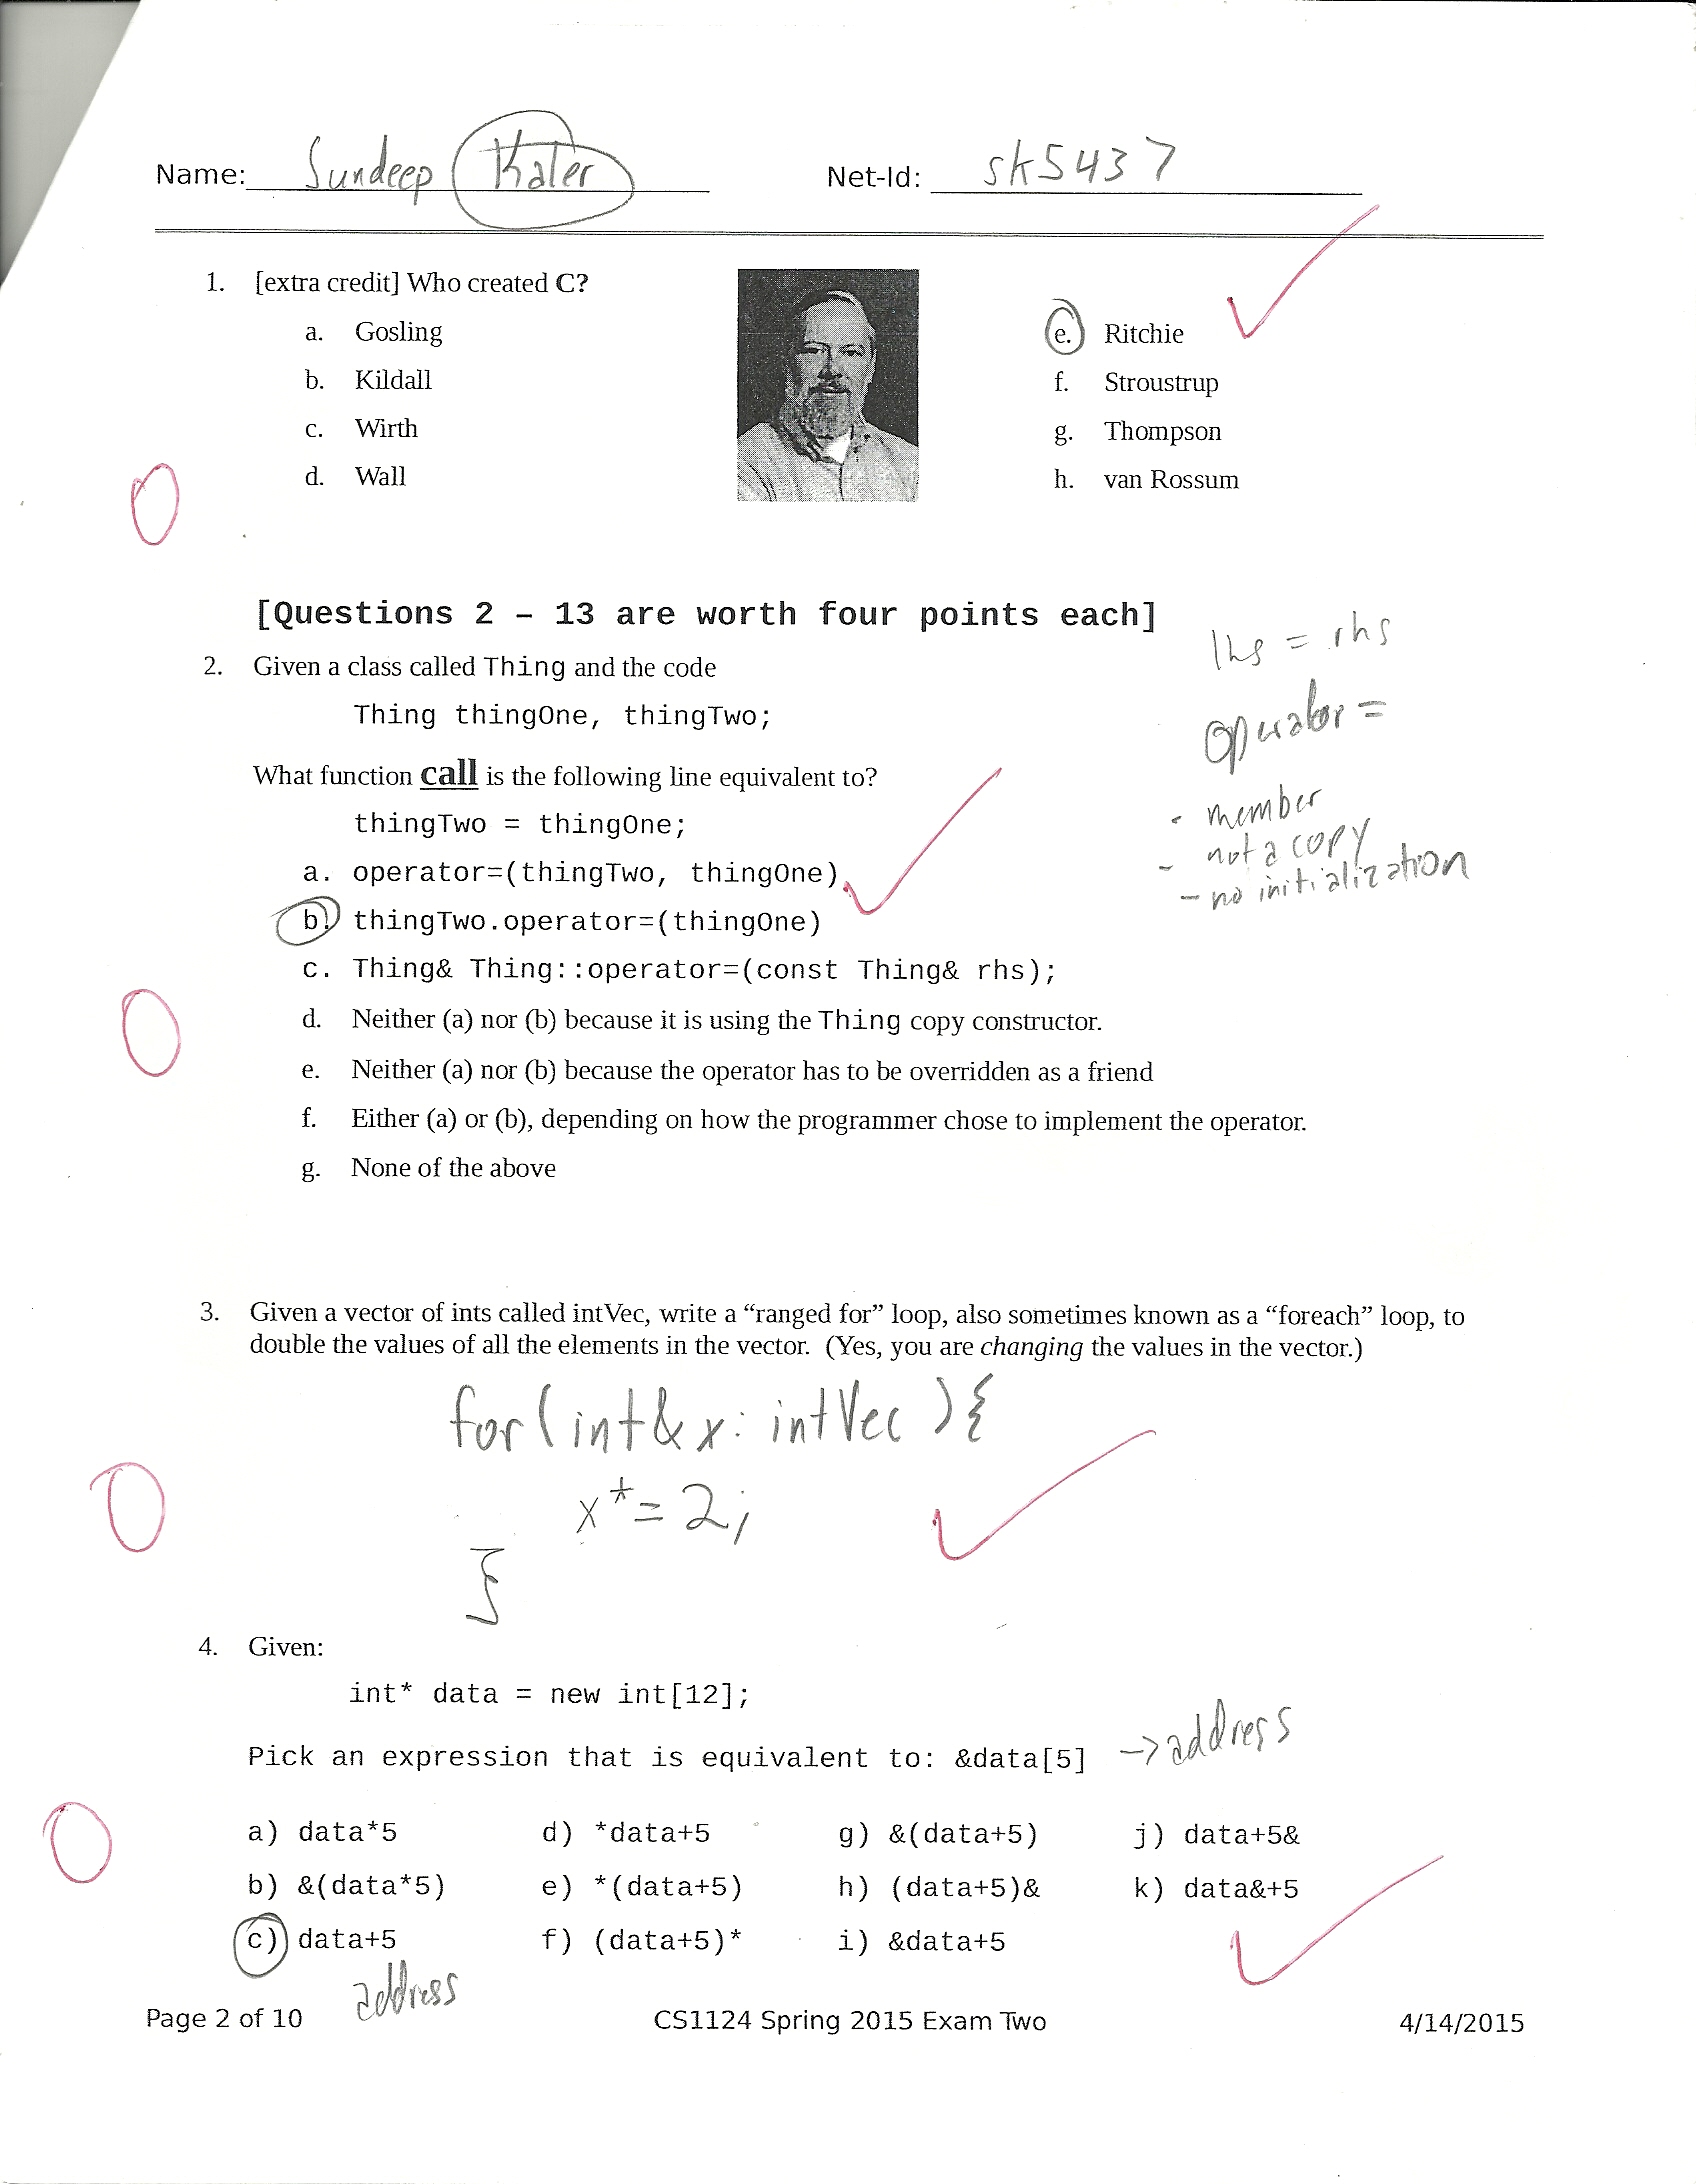 Name: Sundeep Kater Net-Id: sk5437
1. [extra credit] Who created C?
a. Gosling
b. Kildall
c. Wirth
d. Wall
e. Ritchie
f. Stroustrup
g. Thompson
h. van Rossum
0
[Questions 2 – 13 are worth four points each]
lhs = rhs
operator =
- member
- not a copy
- no initialization
2. Given a class called Thing and the code
Thing thingOne, thingTwo;
What function call is the following line equivalent to?
thingTwo = thingOne;
a. operator=(thingTwo, thingOne)
b. thingTwo.operator=(thingOne)
c. Thing& Thing::operator=(const Thing& rhs);
d. Neither (a) nor (b) because it is using the Thing copy constructor.
e. Neither (a) nor (b) because the operator has to be overridden as a friend
f. Either (a) or (b), depending on how the programmer chose to implement the operator.
g. None of the above
0
3. Given a vector of ints called intVec, write a “ranged for” loop, also sometimes known as a “foreach” loop, to
double the values of all the elements in the vector. (Yes, you are changing the values in the vector.)
for(int& x: intVec){
x*=2;
}
0
4. Given:
int* data = new int[12];
Pick an expression that is equivalent to: &data[5] -> address
0
a) data*5 d) *data+5 g) &(data+5) j) data+5&
b) &(data*5) e) *(data+5) h) (data+5)& k) data&+5
c) data+5 f) (data+5)* i) &data+5
address
Page 2 of 10 CS1124 Spring 2015 Exam Two 4/14/2015